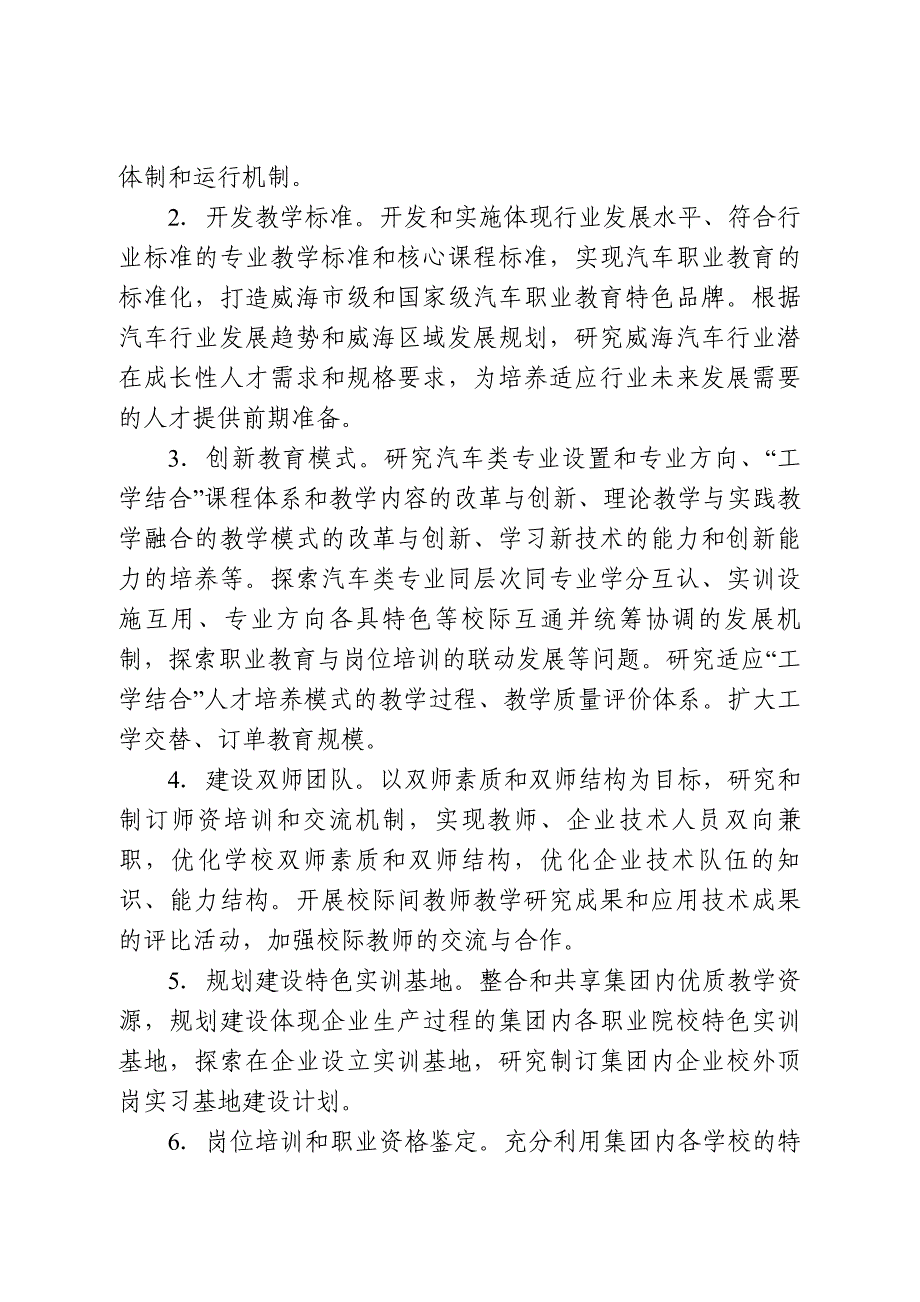 体制和运行机制。
2．开发教学标准。开发和实施体现行业发展水平、符合行
业标准的专业教学标准和核心课程标准，实现汽车职业教育的
标准化，打造威海市级和国家级汽车职业教育特色品牌。根据
汽车行业发展趋势和威海区域发展规划，研究威海汽车行业潜
在成长性人才需求和规格要求，为培养适应行业未来发展需要
的人才提供前期准备。
3．创新教育模式。研究汽车类专业设置和专业方向、“工
学结合”课程体系和教学内容的改革与创新、理论教学与实践教
学融合的教学模式的改革与创新、学习新技术的能力和创新能
力的培养等。探索汽车类专业同层次同专业学分互认、实训设
施互用、专业方向各具特色等校际互通并统筹协调的发展机
制，探索职业教育与岗位培训的联动发展等问题。研究适应“工
学结合”人才培养模式的教学过程、教学质量评价体系。扩大工
学交替、订单教育规模。
4．建设双师团队。以双师素质和双师结构为目标，研究和
制订师资培训和交流机制，实现教师、企业技术人员双向兼
职，优化学校双师素质和双师结构，优化企业技术队伍的知
识、能力结构。开展校际间教师教学研究成果和应用技术成果
的评比活动，加强校际教师的交流与合作。
5．规划建设特色实训基地。整合和共享集团内优质教学资
源，规划建设体现企业生产过程的集团内各职业院校特色实训
基地，探索在企业设立实训基地，研究制订集团内企业校外顶
岗实习基地建设计划。
6．岗位培训和职业资格鉴定。充分利用集团内各学校的特